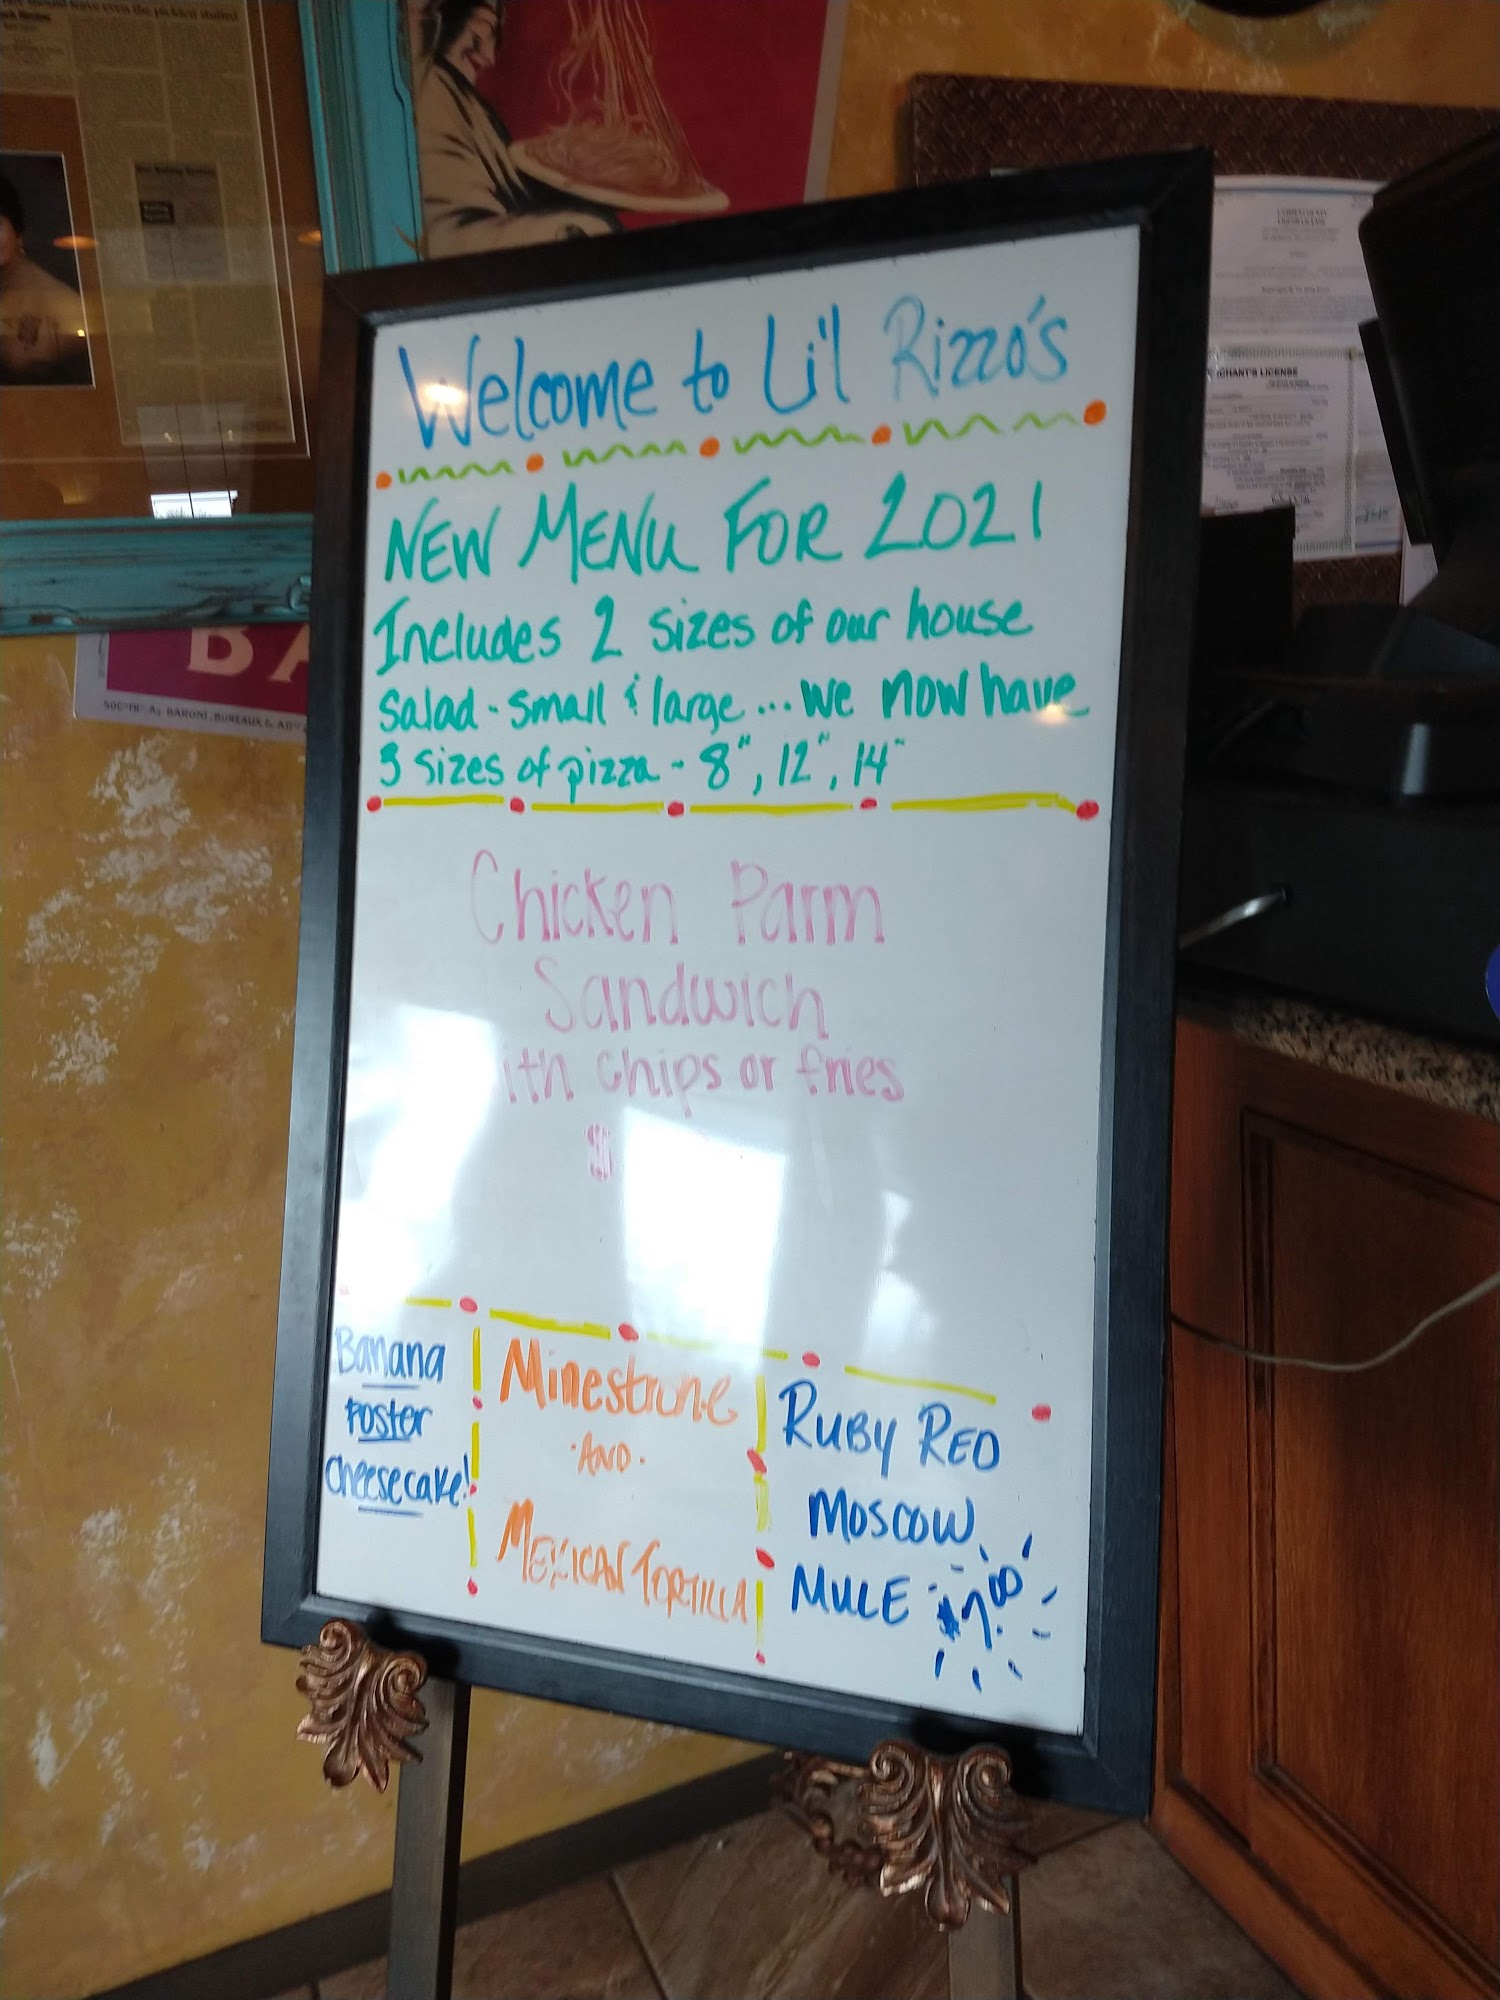 Welcome to Li'l Rizzo's
NEW MENU FOR 2021
Includes 2 sizes of our house
salad - small & large... we now have
3 sizes of pizza - 8", 12", 14"
Chicken Parm
Sandwich
ith chips or fries
$
Banana
Foster
Cheesecake!
Minestrone
·AND·
MEXICAN TORTILLA
RUBY RED
MOSCOW
MULE $7.00
BA
CHANT'S LICENSE